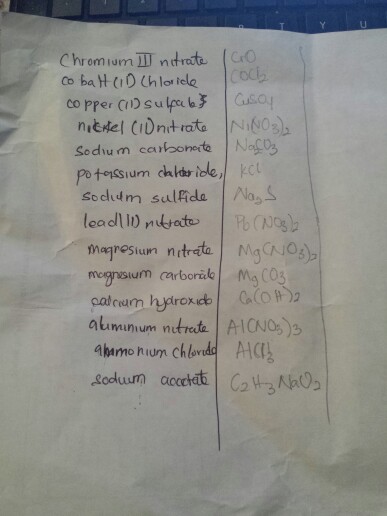 Chromium III nitrate CrO
cobalt (II) Chloride COCl2
copper (II) sulfate CuSO4
nickel (II) nitrate Ni(NO3)2
sodium carbonate Na2CO3
potassium chloride, KCl
sodium sulfide Na2S
lead(II) nitrate Pb(NO3)2
magnesium nitrate Mg(NO3)2
magnesium carbonate MgCO3
calcium hydroxide Ca(OH)2
aluminium nitrate Al(NO3)3
ammonium chloride AlCl3
sodium acetate C2H3NaO2